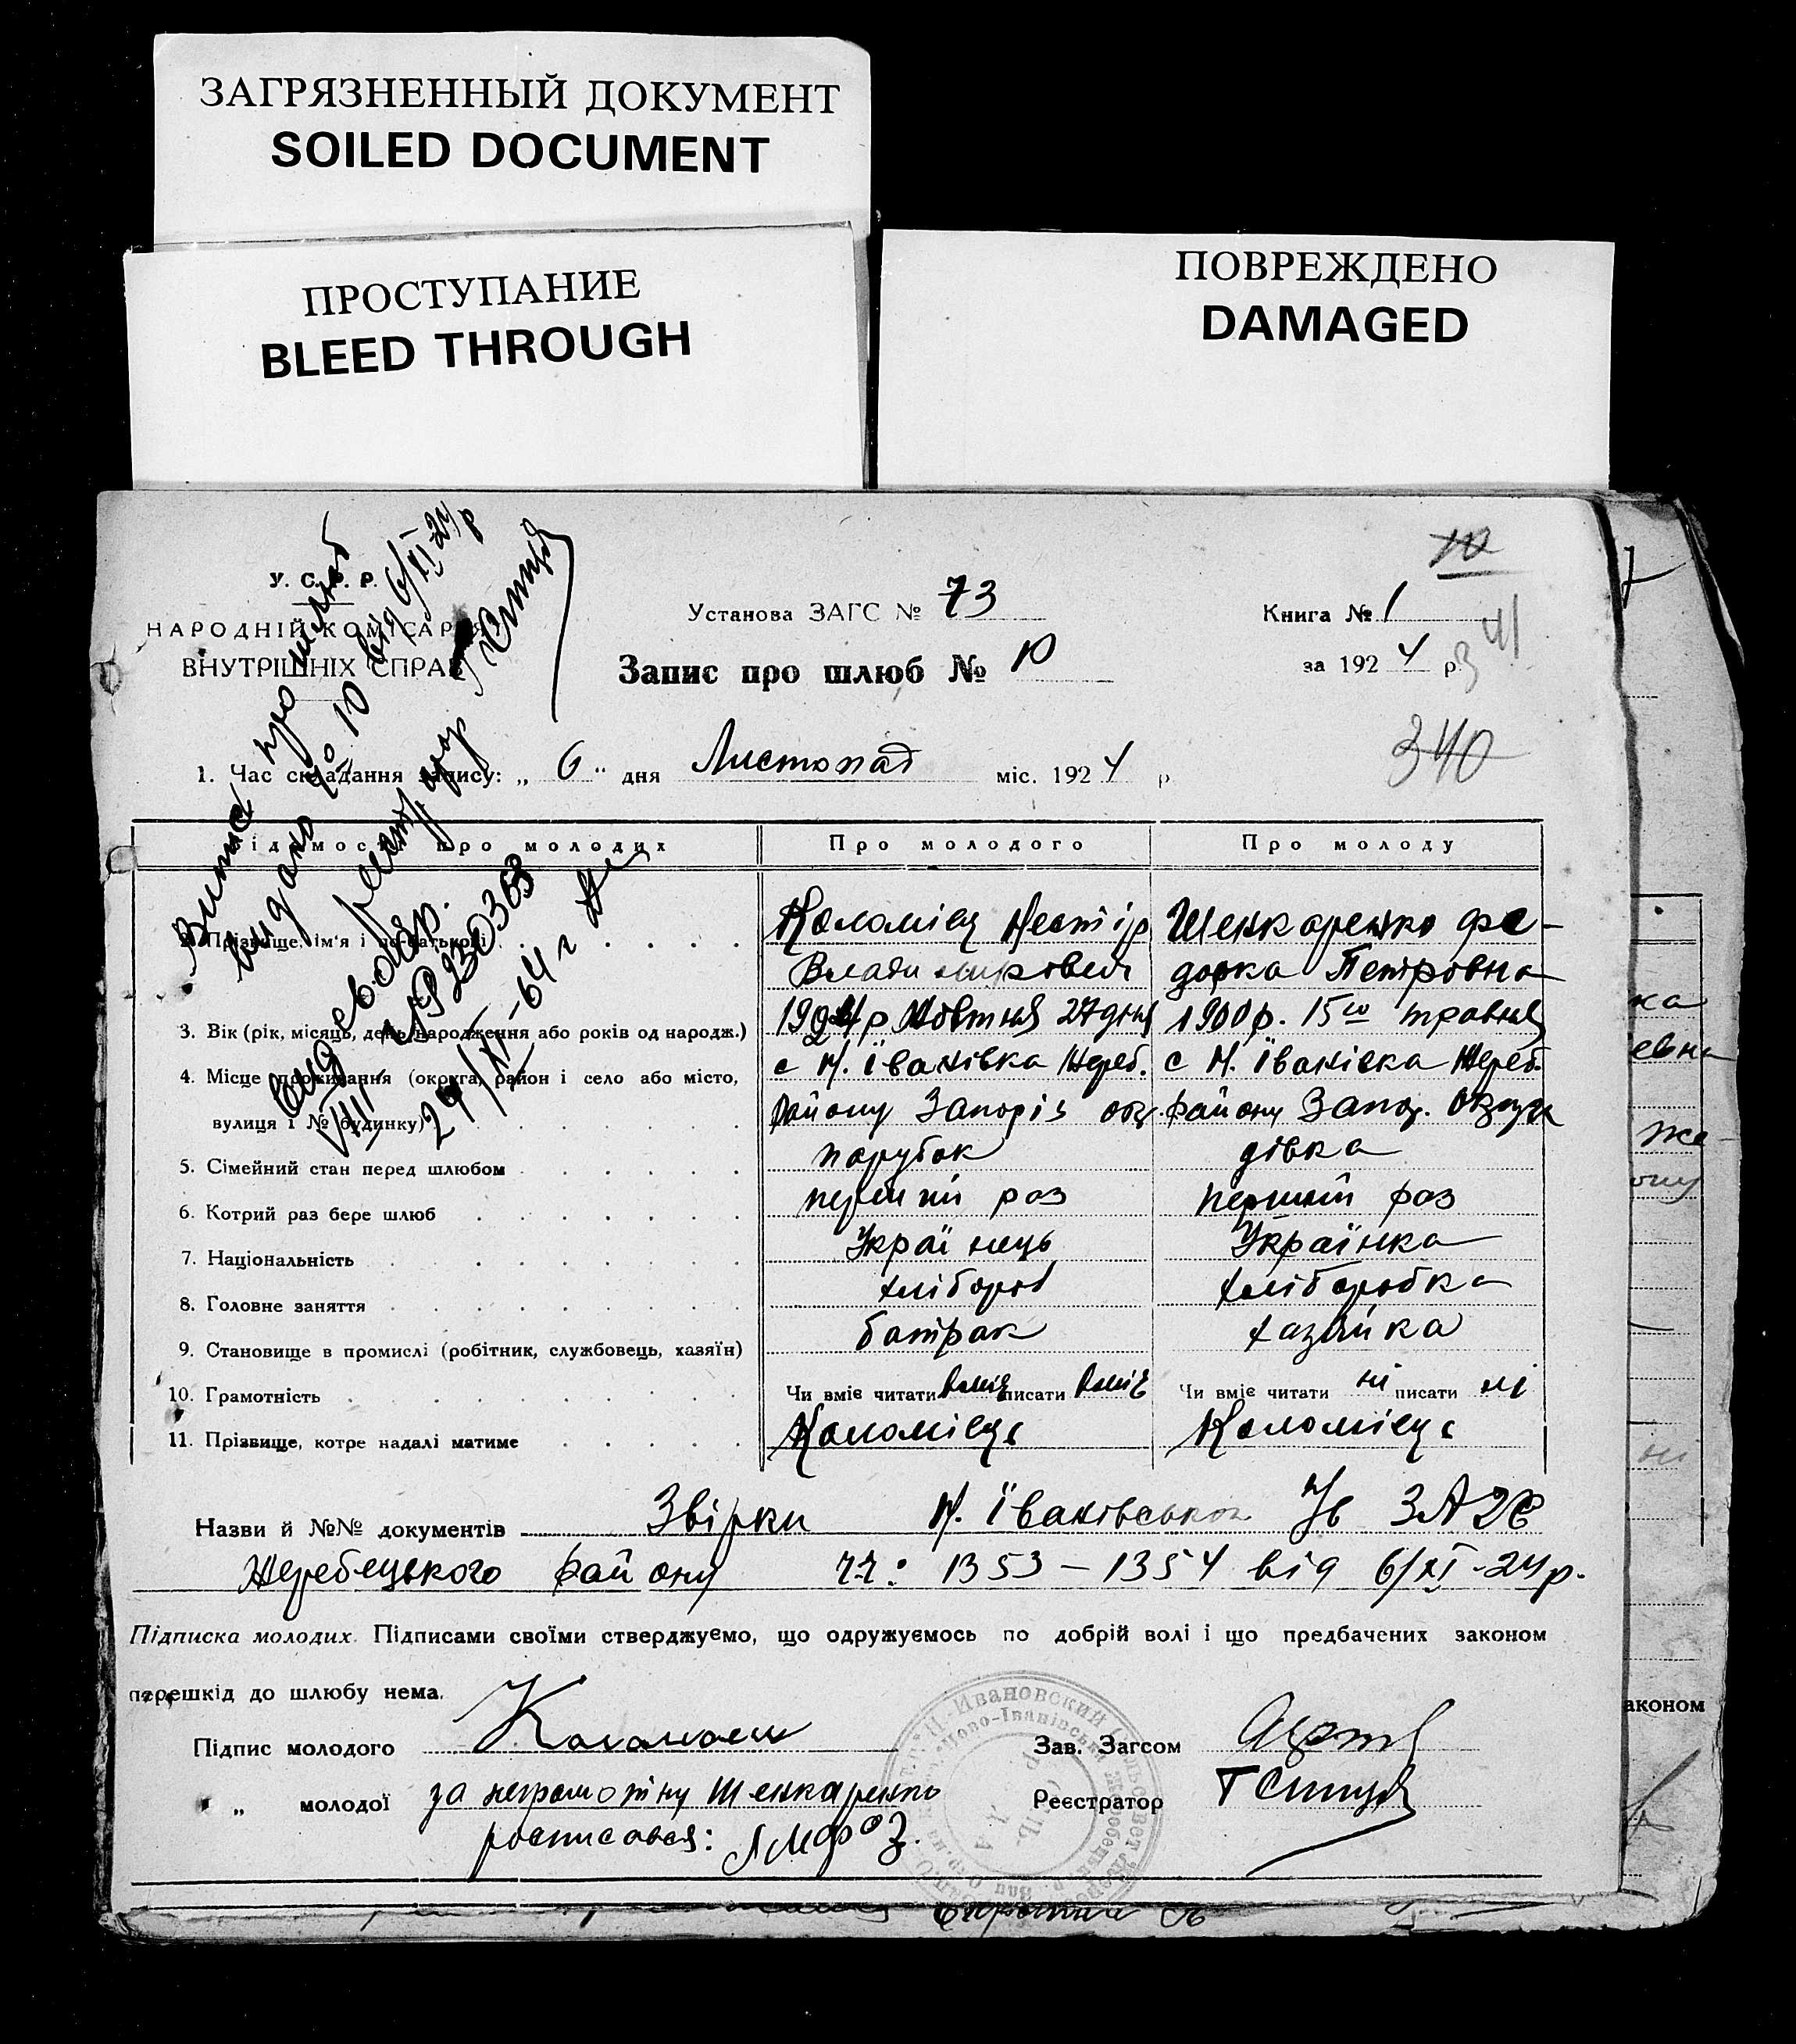 ЗАГРЯЗНЕННЫЙ ДОКУМЕНТ
SOILED DOCUMENT
ПРОСТУПАНИЕ
BLEED THROUGH
ПОВРЕЖДЕНО
DAMAGED
У. С. Р. Р.
НАРОДНІЙ КОМІСАРІЯТ
ВНУТРІШНІХ СПРАВ
Установа ЗАГС № 73
Запис про шлюб № 10
10
Книга № 1
за 1924 р.
341
340
Витяг про шлюб
видано № 10 від 6/XI-24 р
1. Час складання запису: „ 6 " дня Листопад міс. 1924 р
Відомості про молодих
Про молодого
Про молоду
2. Прізвище, ім'я і по-батькові
Коломієц Нестір
Владимирович
Шенкаренко Фе-
дорка Петровна
3. Вік (рік, місяць, день народження або років од народж.)
Жовтня 27 дня
1900 р. 15го травня
4. Місце проживання (округа, район і село або місто,
вулиця і № будинку)
с Н. Їванівка Жереб.
Району Запоріз окр.
с Н. Їванівка Жереб.
Району Запор. Округи
5. Сімейний стан перед шлюбом
парубок
дівка
6. Котрий раз бере шлюб
перший раз
перший раз
7. Національність
Українець
Українка
8. Головне заняття
хлібороб
хліборобка
9. Становище в промислі (робітник, службовець, хазяїн)
батрак
хазяйка
10. Грамотність
Чи вміє читати вміє писати вміє
Чи вміє читати ні писати ні
11. Прізвище, котре надалі матиме
Коломієць
Коломієць
29/XI-64 г
Назви й №№ документів Звірки Н. Їванівської ЗАГС
Жеребецького Району чч: 1353 – 1354 від 6/XI-24 р.
Підписка молодих. Підписами своїми стверджуємо, що одружуємось по добрій волі і що предбачених законом
перешкід до шлюбу нема.
Підпис молодого
Зав. Загсом
„ молодої за неграмотну Шенкаренко
росписався:
Реєстратор
Н-Ивановский сельсовет
Ново-Іванівська
аконом